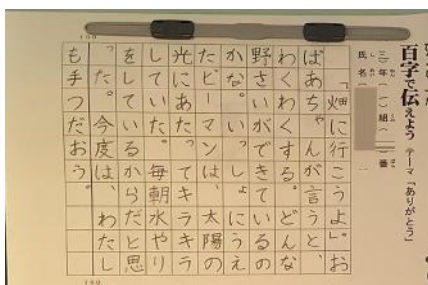 百字で伝えよう テーマ「ありがとう」
三年（一）組（　）番
氏名
「畑に行こうよ。」お
ばあちゃんが言うと、
わくわくする。どんな
野さいができているの
かな。いっしょにうえ
たピーマンは、太陽の
光にあたってキラキラ
していた。毎朝水やり
をしているからだと思
った。今度は、わたし
も手つだおう。
100